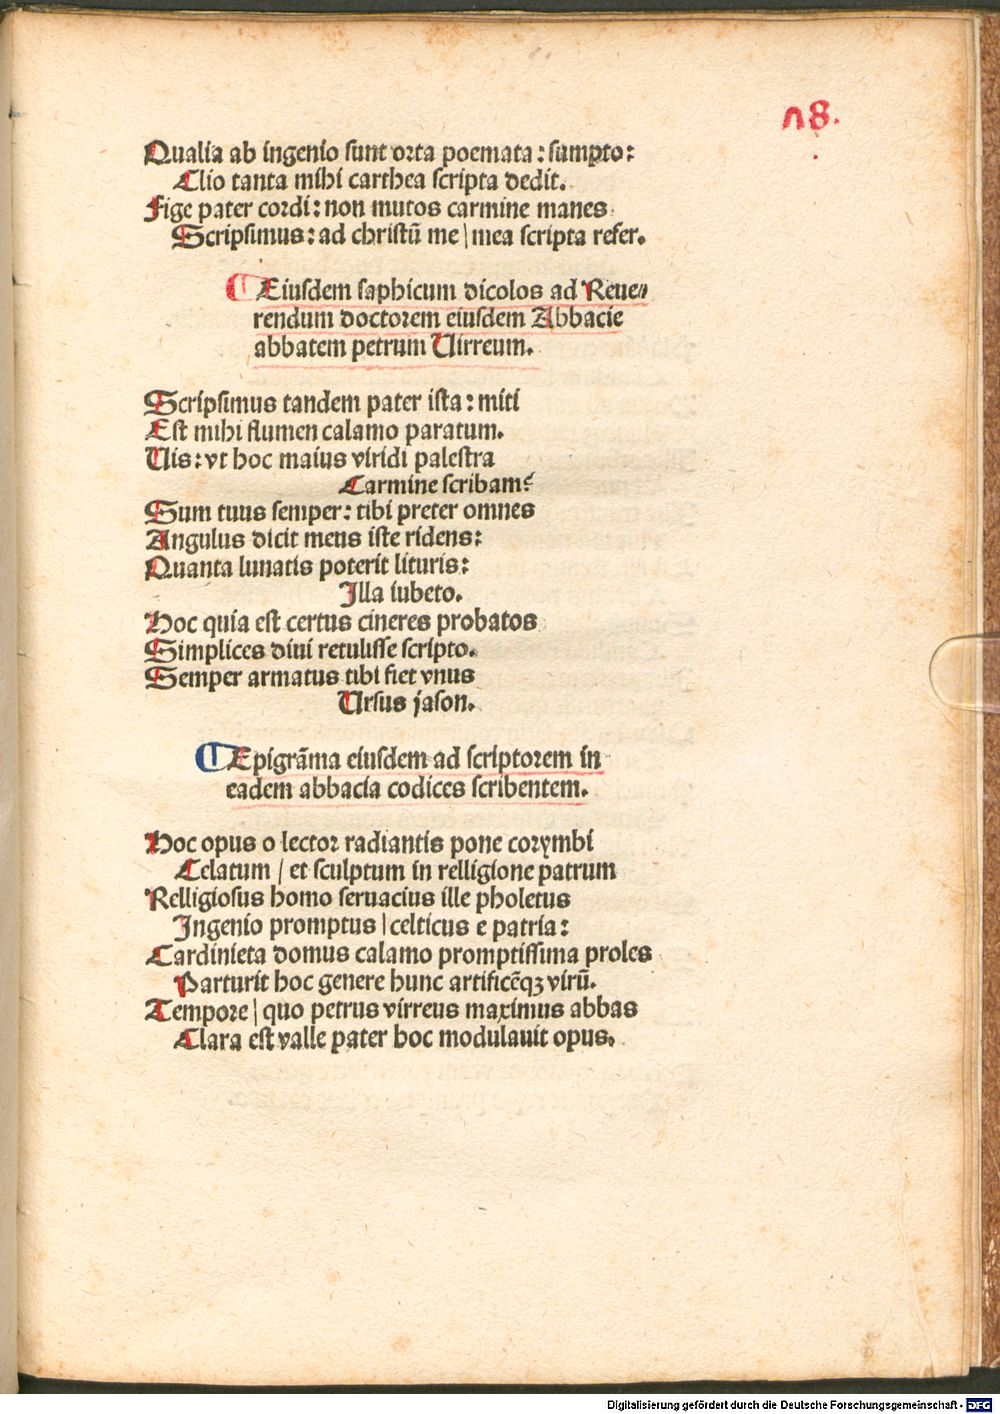 n8.
Qualia ab ingenio sunt orta poemata: sumpto:
Clio tanta mihi carthea scripta dedit.
Fige pater cordi: non mutos carmine manes
Scripsimus: ad christū me / mea scripta refer.
Eiusdem saphicum dicolos ad Reue-
rendum doctorem eiusdem Abbacie
abbatem petrum Uirreum.
Scripsimus tandem pater ista: miti
Est mihi flumen calamo paratum.
Uis: vt hoc maius viridi palestra
Carmine scribam?
Sum tuus semper: tibi preter omnes
Angulus dicit meus iste ridens:
Quanta lunatis poterit lituris:
Illa iubeto.
Hoc quia est certus cineres probatos
Simplices diui retulisse scripto.
Semper armatus tibi fiet vnus
Ursus jason.
Epigrāma eiusdem ad scriptorem in
eadem abbacia codices scribentem.
Hoc opus o lector radiantis pone corymbi
Celatum / et sculptum in relligione patrum
Relligiosus homo seruacius ille pholetus
Ingenio promptus / celticus e patria:
Cardinieta domus calamo promptissima proles
Parturit hoc genere hunc artificēqꝫ virū.
Tempore / quo petrus virreus maximus abbas
Clara est valle pater hoc modulauit opus.
Digitalisierung gefördert durch die Deutsche Forschungsgemeinschaft - DFG